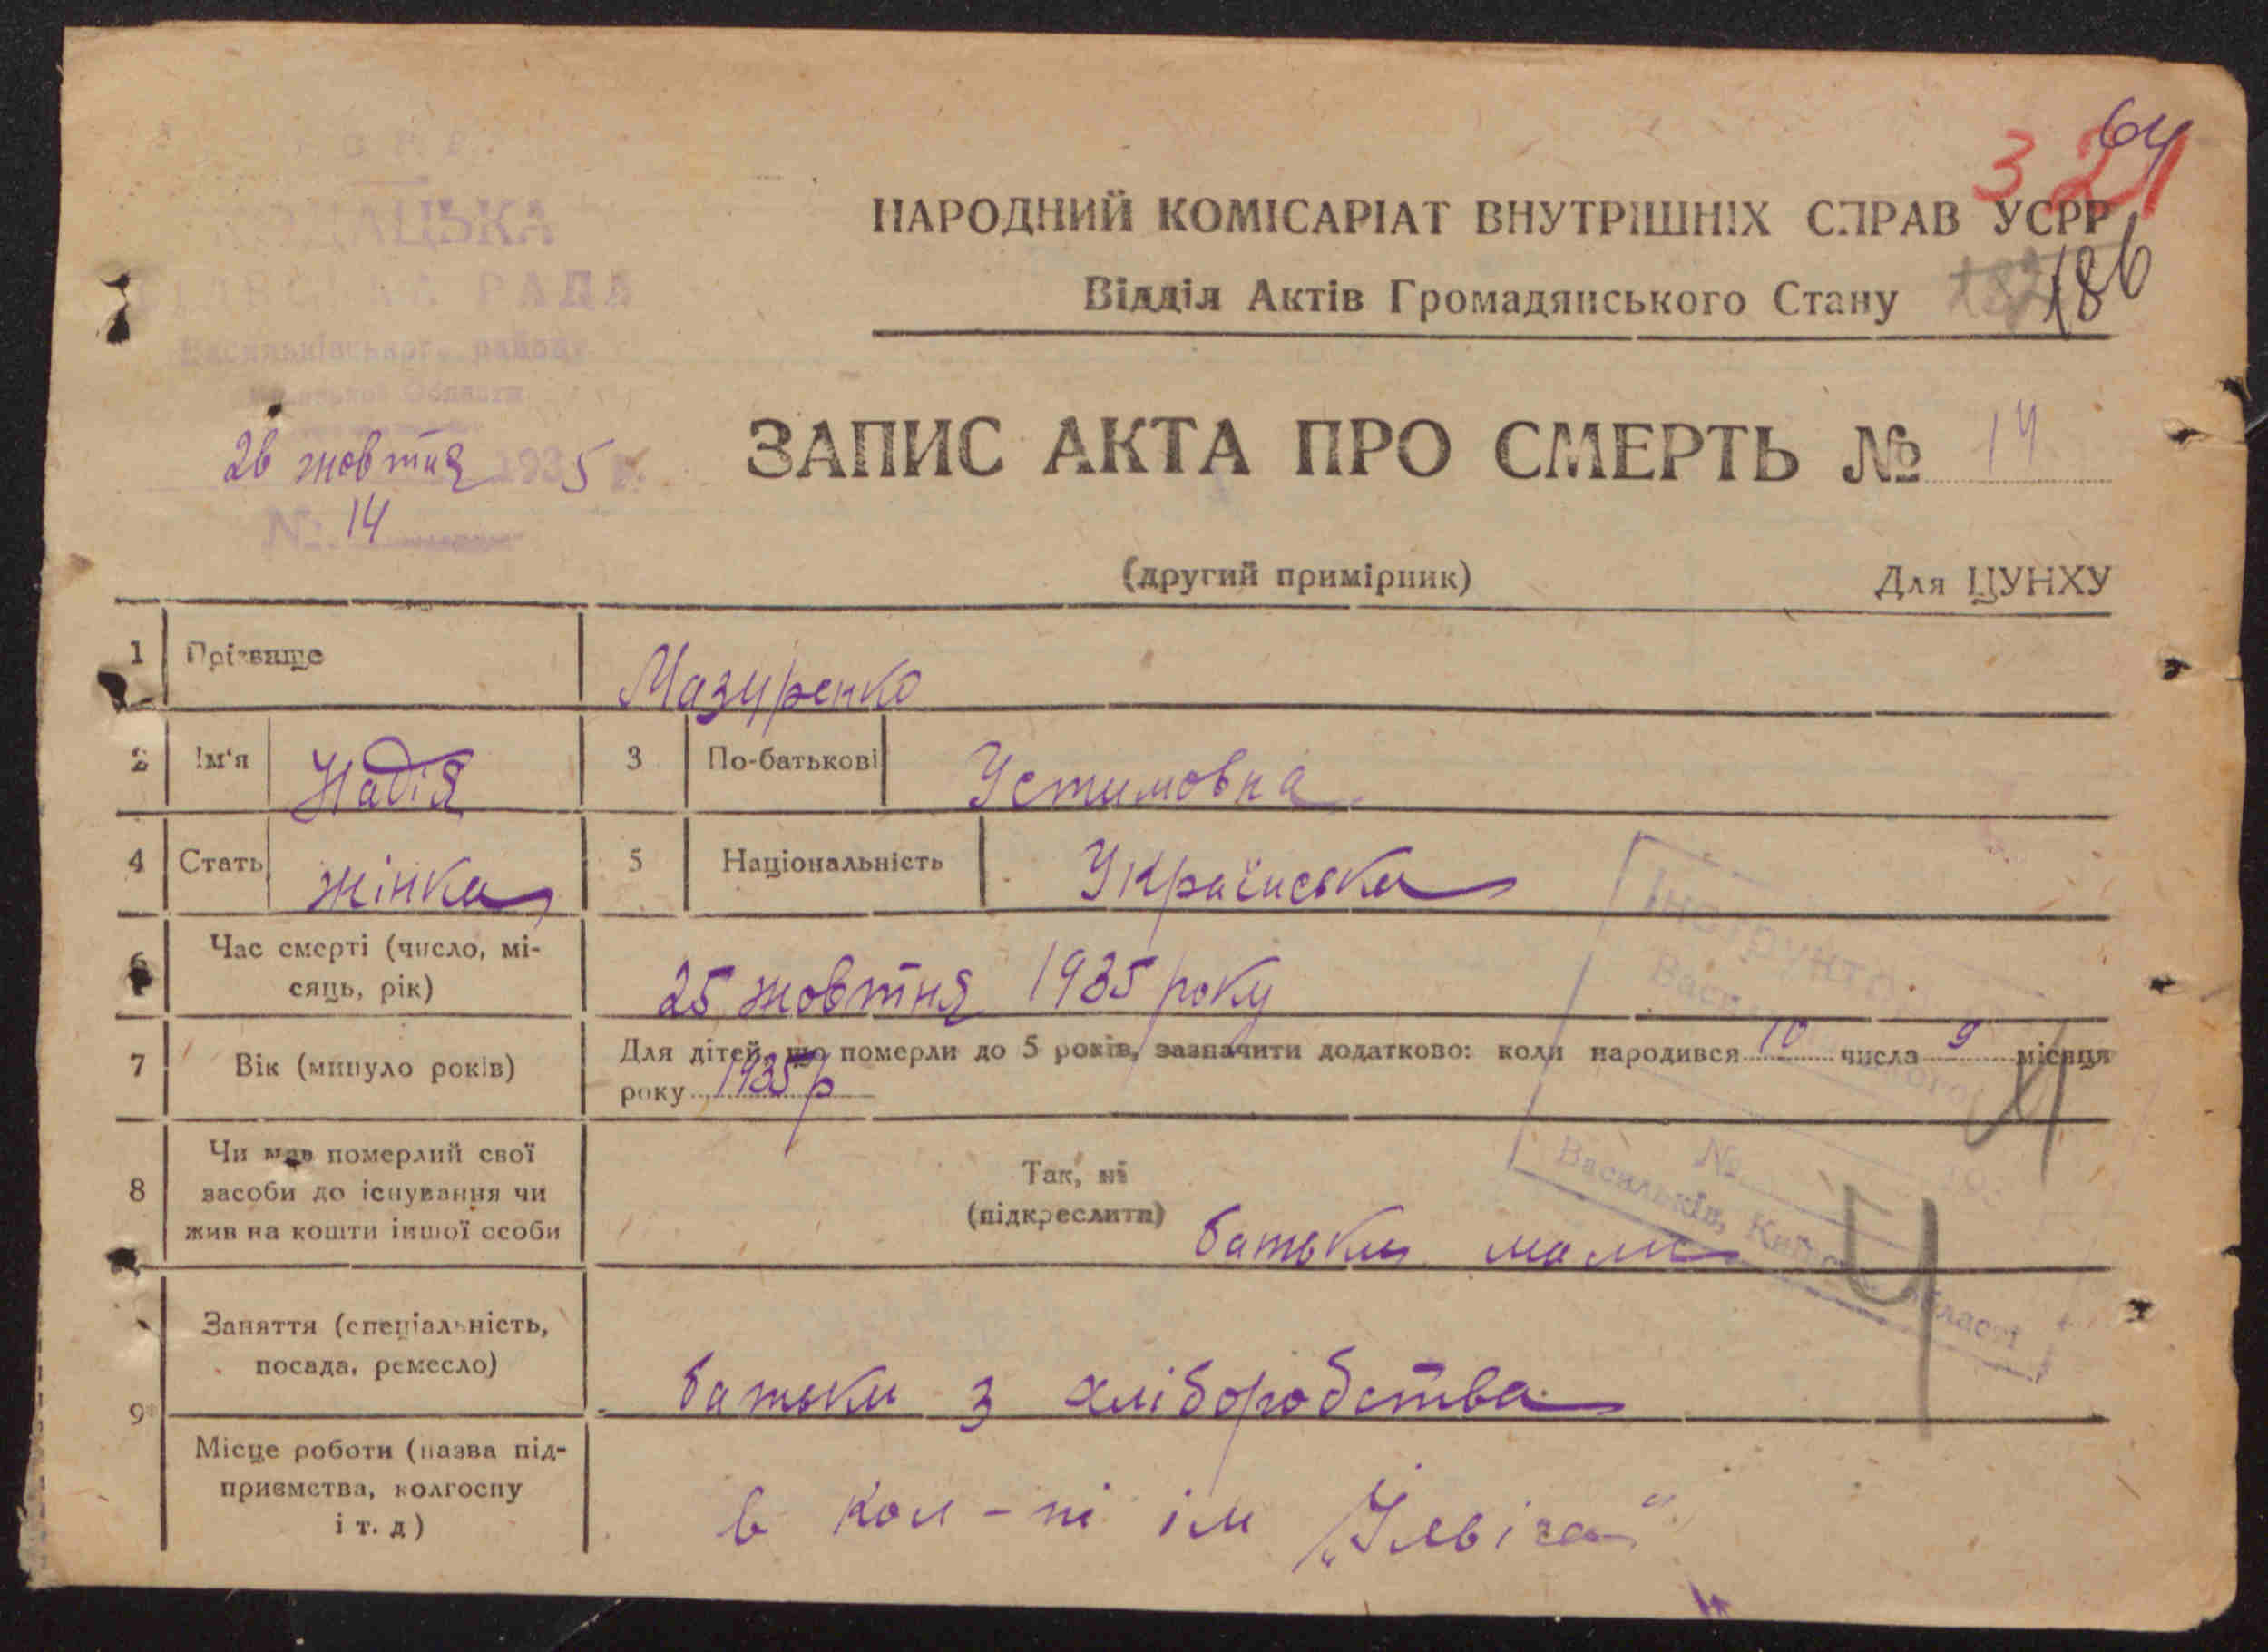 64
321
НАРОДНИЙ КОМІСАРІАТ ВНУТРІШНІХ СПРАВ УСРР
Відділ Актів Громадянського Стану 182 186
РАДА
Васильківського району
Області
26 жовтня 1935 р.
№ 14
ЗАПИС АКТА ПРО СМЕРТЬ № 14
(другий примірник) Для ЦУНХУ
1 Прізвище Мазуренко
2 Ім'я Надія 3 По-батькові Устимовна
4 Стать жінка 5 Національність Українська
6 Час смерті (число, мі-
сяць, рік) 25 жовтня 1935 року
7 Вік (минуло років) Для дітей, що померли до 5 років, зазначити додатково: коли народився 10 числа 9 місяця
року 1935 р
8 Чи мав померлий свої
засоби до існування чи
жив на кошти іншої особи
Так, ні
(підкреслити) батьки мали
№
Васильків, Київськ. області
4
9 Заняття (спеціальність,
посада, ремесло) батьки з хліборобства
Місце роботи (назва під-
приємства, колгоспу
і т. д) в кол-пі ім „Ілвіча"